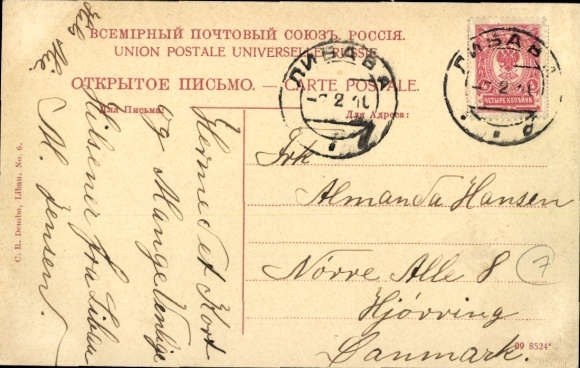 ВСЕМІРНЫЙ ПОЧТОВЫЙ СОЮЗЪ. РОССІЯ.
UNION POSTALE UNIVERSELLE. RUSSIE
ОТКРЫТОЕ ПИСЬМО. — CARTE POSTALE.
Для Письма:
Для Адреса:
ЛИБАВА
2
ЛИБАВА
2
ЧЕТЫРЕ КОПѢЙКИ
Frk
Almanda Hansen
Nörre Alle 8
Hjörring
Danmark.
7
09 8524*
Hermed et Kort
og Mange Venlige
Hilsener fra Libau
M. Jensen.
C. R. Dembo, Libau, No. 6.